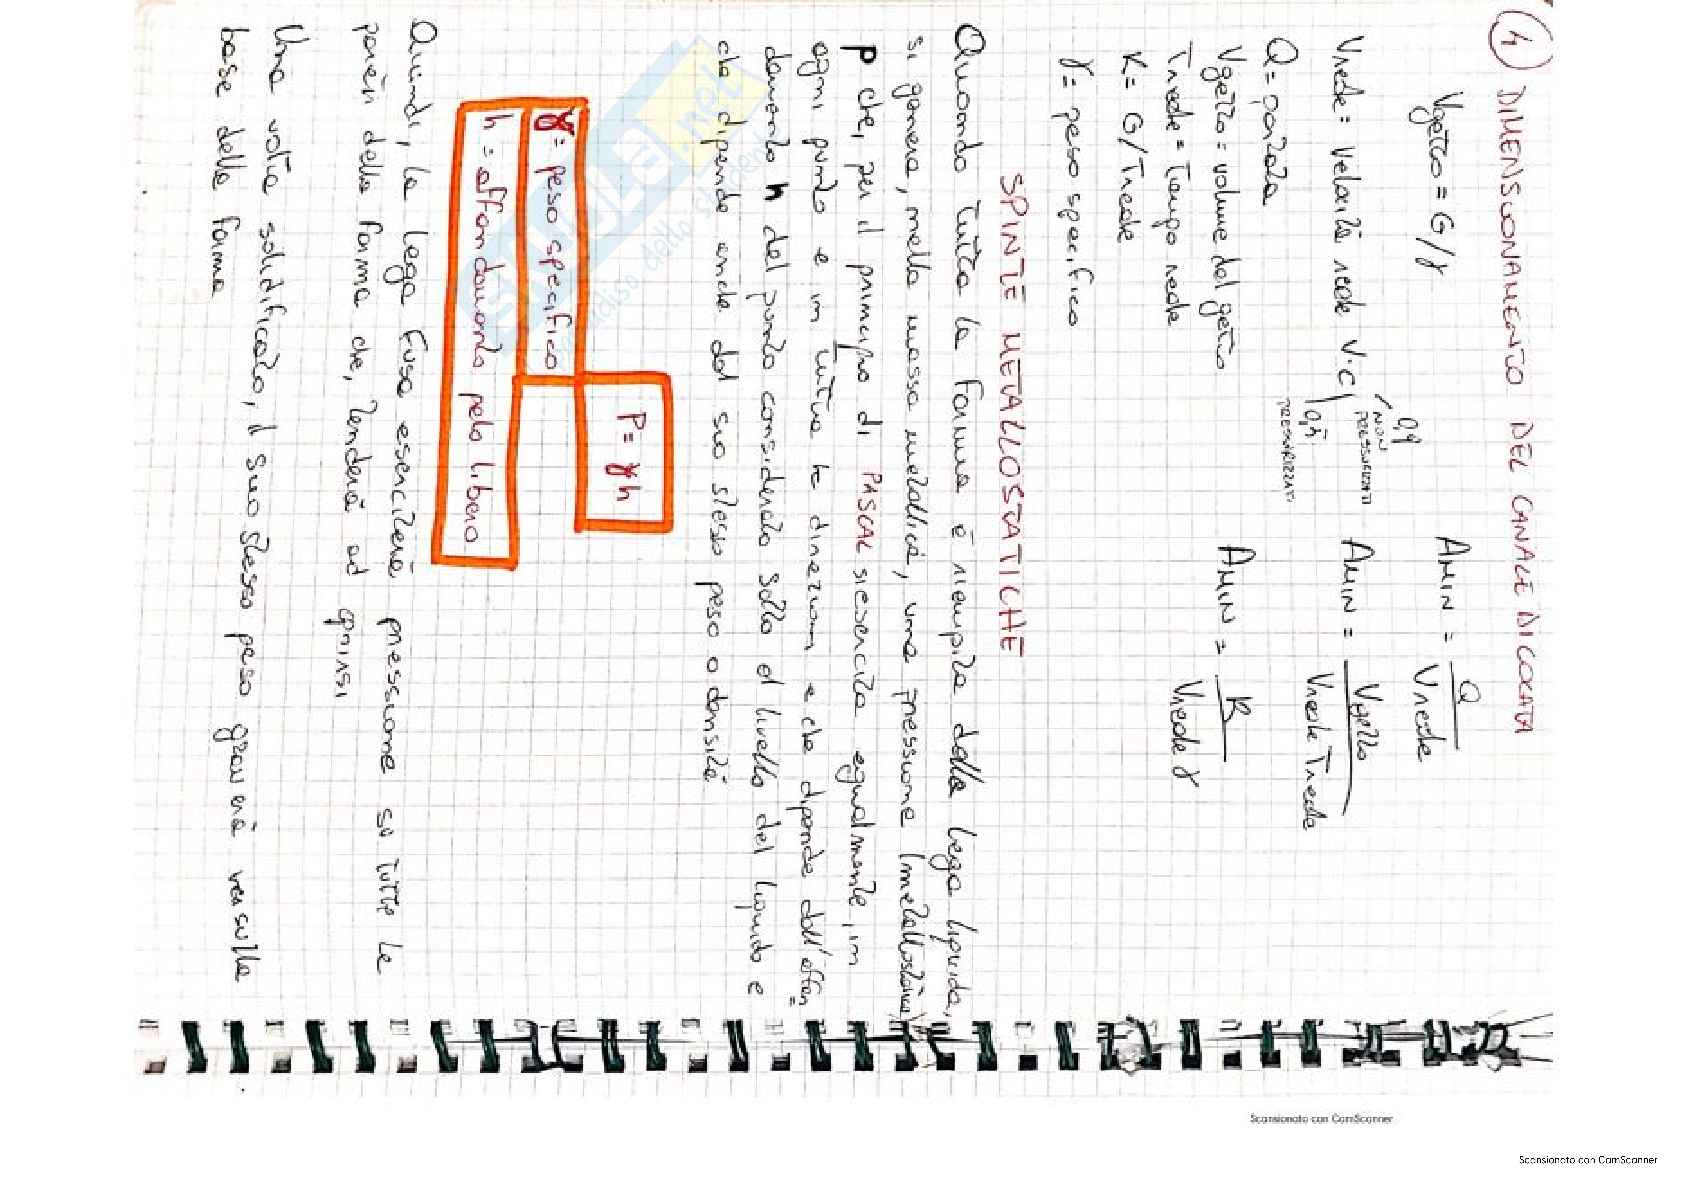 4 DIMENSIONAMENTO DEL CANALE DI COLATA
Vgetto = G/γ
AMIN = Q / Vreale
Vreale = velocità reale V·C
0,9 NON PRESSURIZZATI
0,5 PRESSURIZZATI
AMIN = Vgetto / Vreale Treale
Q = portata
Vgetto = volume del getto
AMIN = K / Vreale γ
Treale = tempo reale
K = G/Treale
γ = peso specifico
SPINTE METALLOSTATICHE
Quando tutta la forma è riempita dalla lega liquida,
si genera, nella massa metallica, una pressione (metallostatica)
p che, per il principio di PASCAL si esercita egualmente, in
ogni punto e in tutte le direzioni e che dipende dall'affon
damento h del punto considerato sotto il livello del liquido e
che dipende anche dal suo stesso peso o densità
P = γh
γ = peso specifico
h = affondamento pelo libero
Quindi, la lega fusa eserciterà pressione su tutte le
pareti della forma che, tenderà ad aprirsi
Una volta solidificato, il suo stesso peso graverà sulla
base della forma
Scansionato con CamScanner
Scansionato con CamScanner